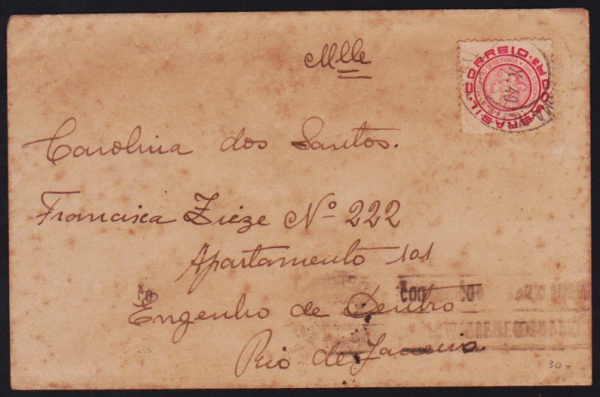 Mlle
CORREIO DO BRASIL
Carolina dos Santos.
Francisca Zieze Nº 222
Apartamento 101
Engenho de Dentro
Rio de Janeiro
30